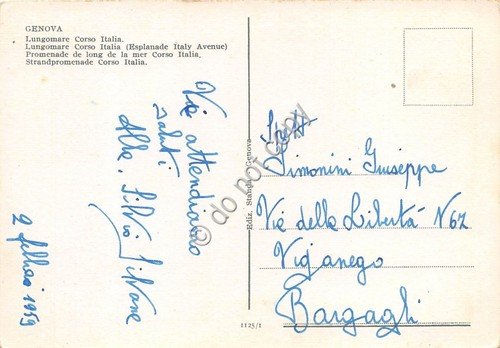 GENOVA
Lungomare Corso Italia.
Lungomare Corso Italia (Esplanade Italy Avenue)
Promenade de long de la mer Corso Italia.
Strandpromenade Corso Italia.
Vi attendiamo
saluti
Alba, Silvia, Silvana
2 febbraio 1959
Ediz. Standa - Genova
1125/1
do not copy
Simonini Giuseppe
Via della Libertà N 67
Viganego
Bargagli